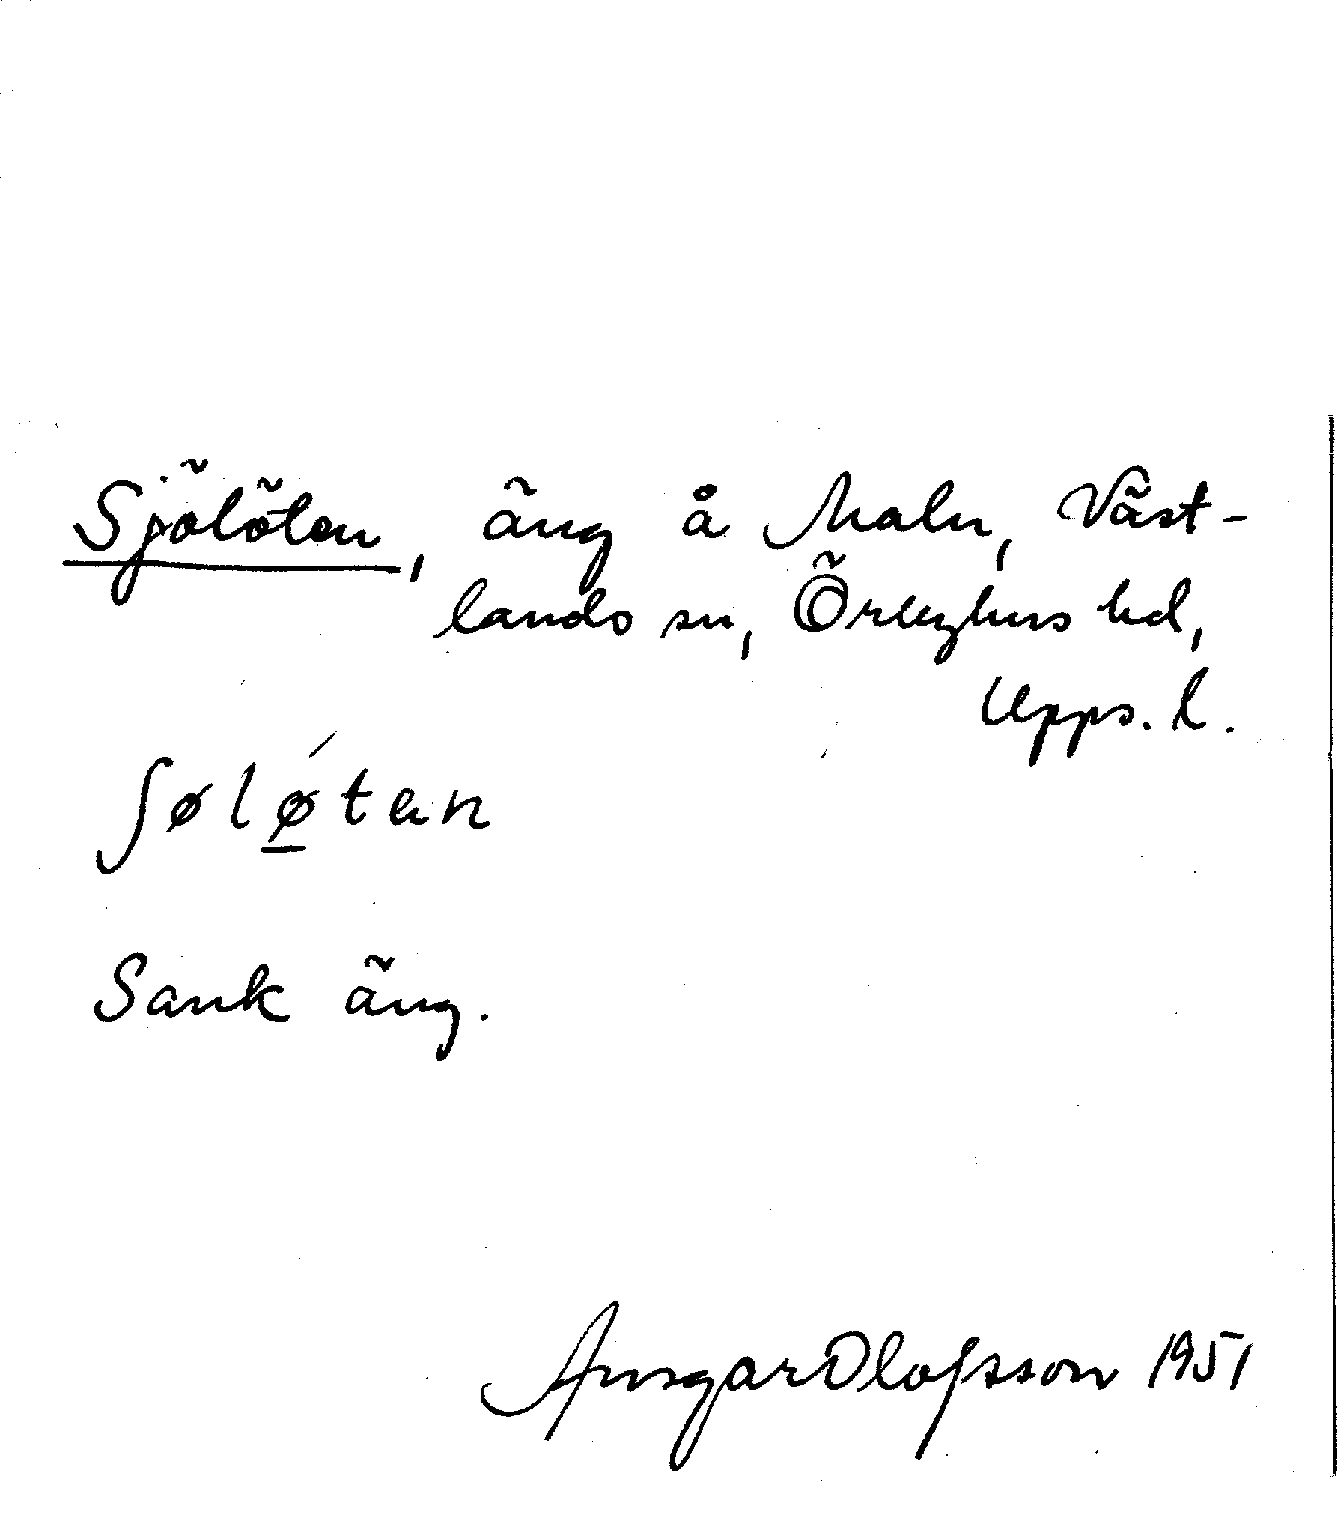 Sjölöten, äng å Maln, Väst-
lands sn, Örbyhus hd,
Upps. l.
ʃølǿtən
Sank äng.
Ansgar Olofsson 1951